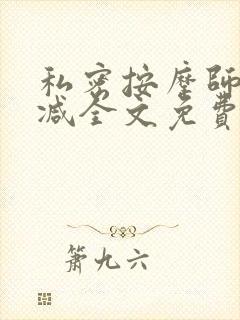 私密按摩師
减全文免費
箫九六